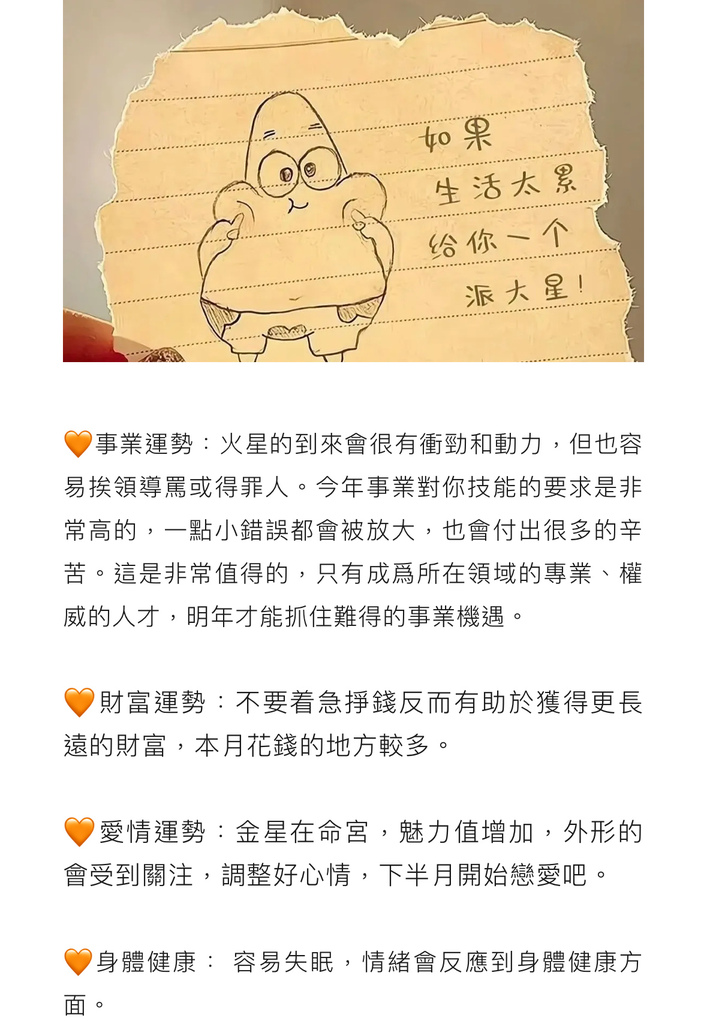 如果
生活太累
给你一个
派大星!
🧡事業運勢：火星的到來會很有衝勁和動力，但也容
易挨領導罵或得罪人。今年事業對你技能的要求是非
常高的，一點小錯誤都會被放大，也會付出很多的辛
苦。這是非常值得的，只有成爲所在領域的專業、權
威的人才，明年才能抓住難得的事業機遇。
🧡財富運勢：不要着急掙錢反而有助於獲得更長
遠的財富，本月花錢的地方較多。
🧡愛情運勢：金星在命宮，魅力值增加，外形的
會受到關注，調整好心情，下半月開始戀愛吧。
🧡身體健康： 容易失眠，情緒會反應到身體健康方
面。